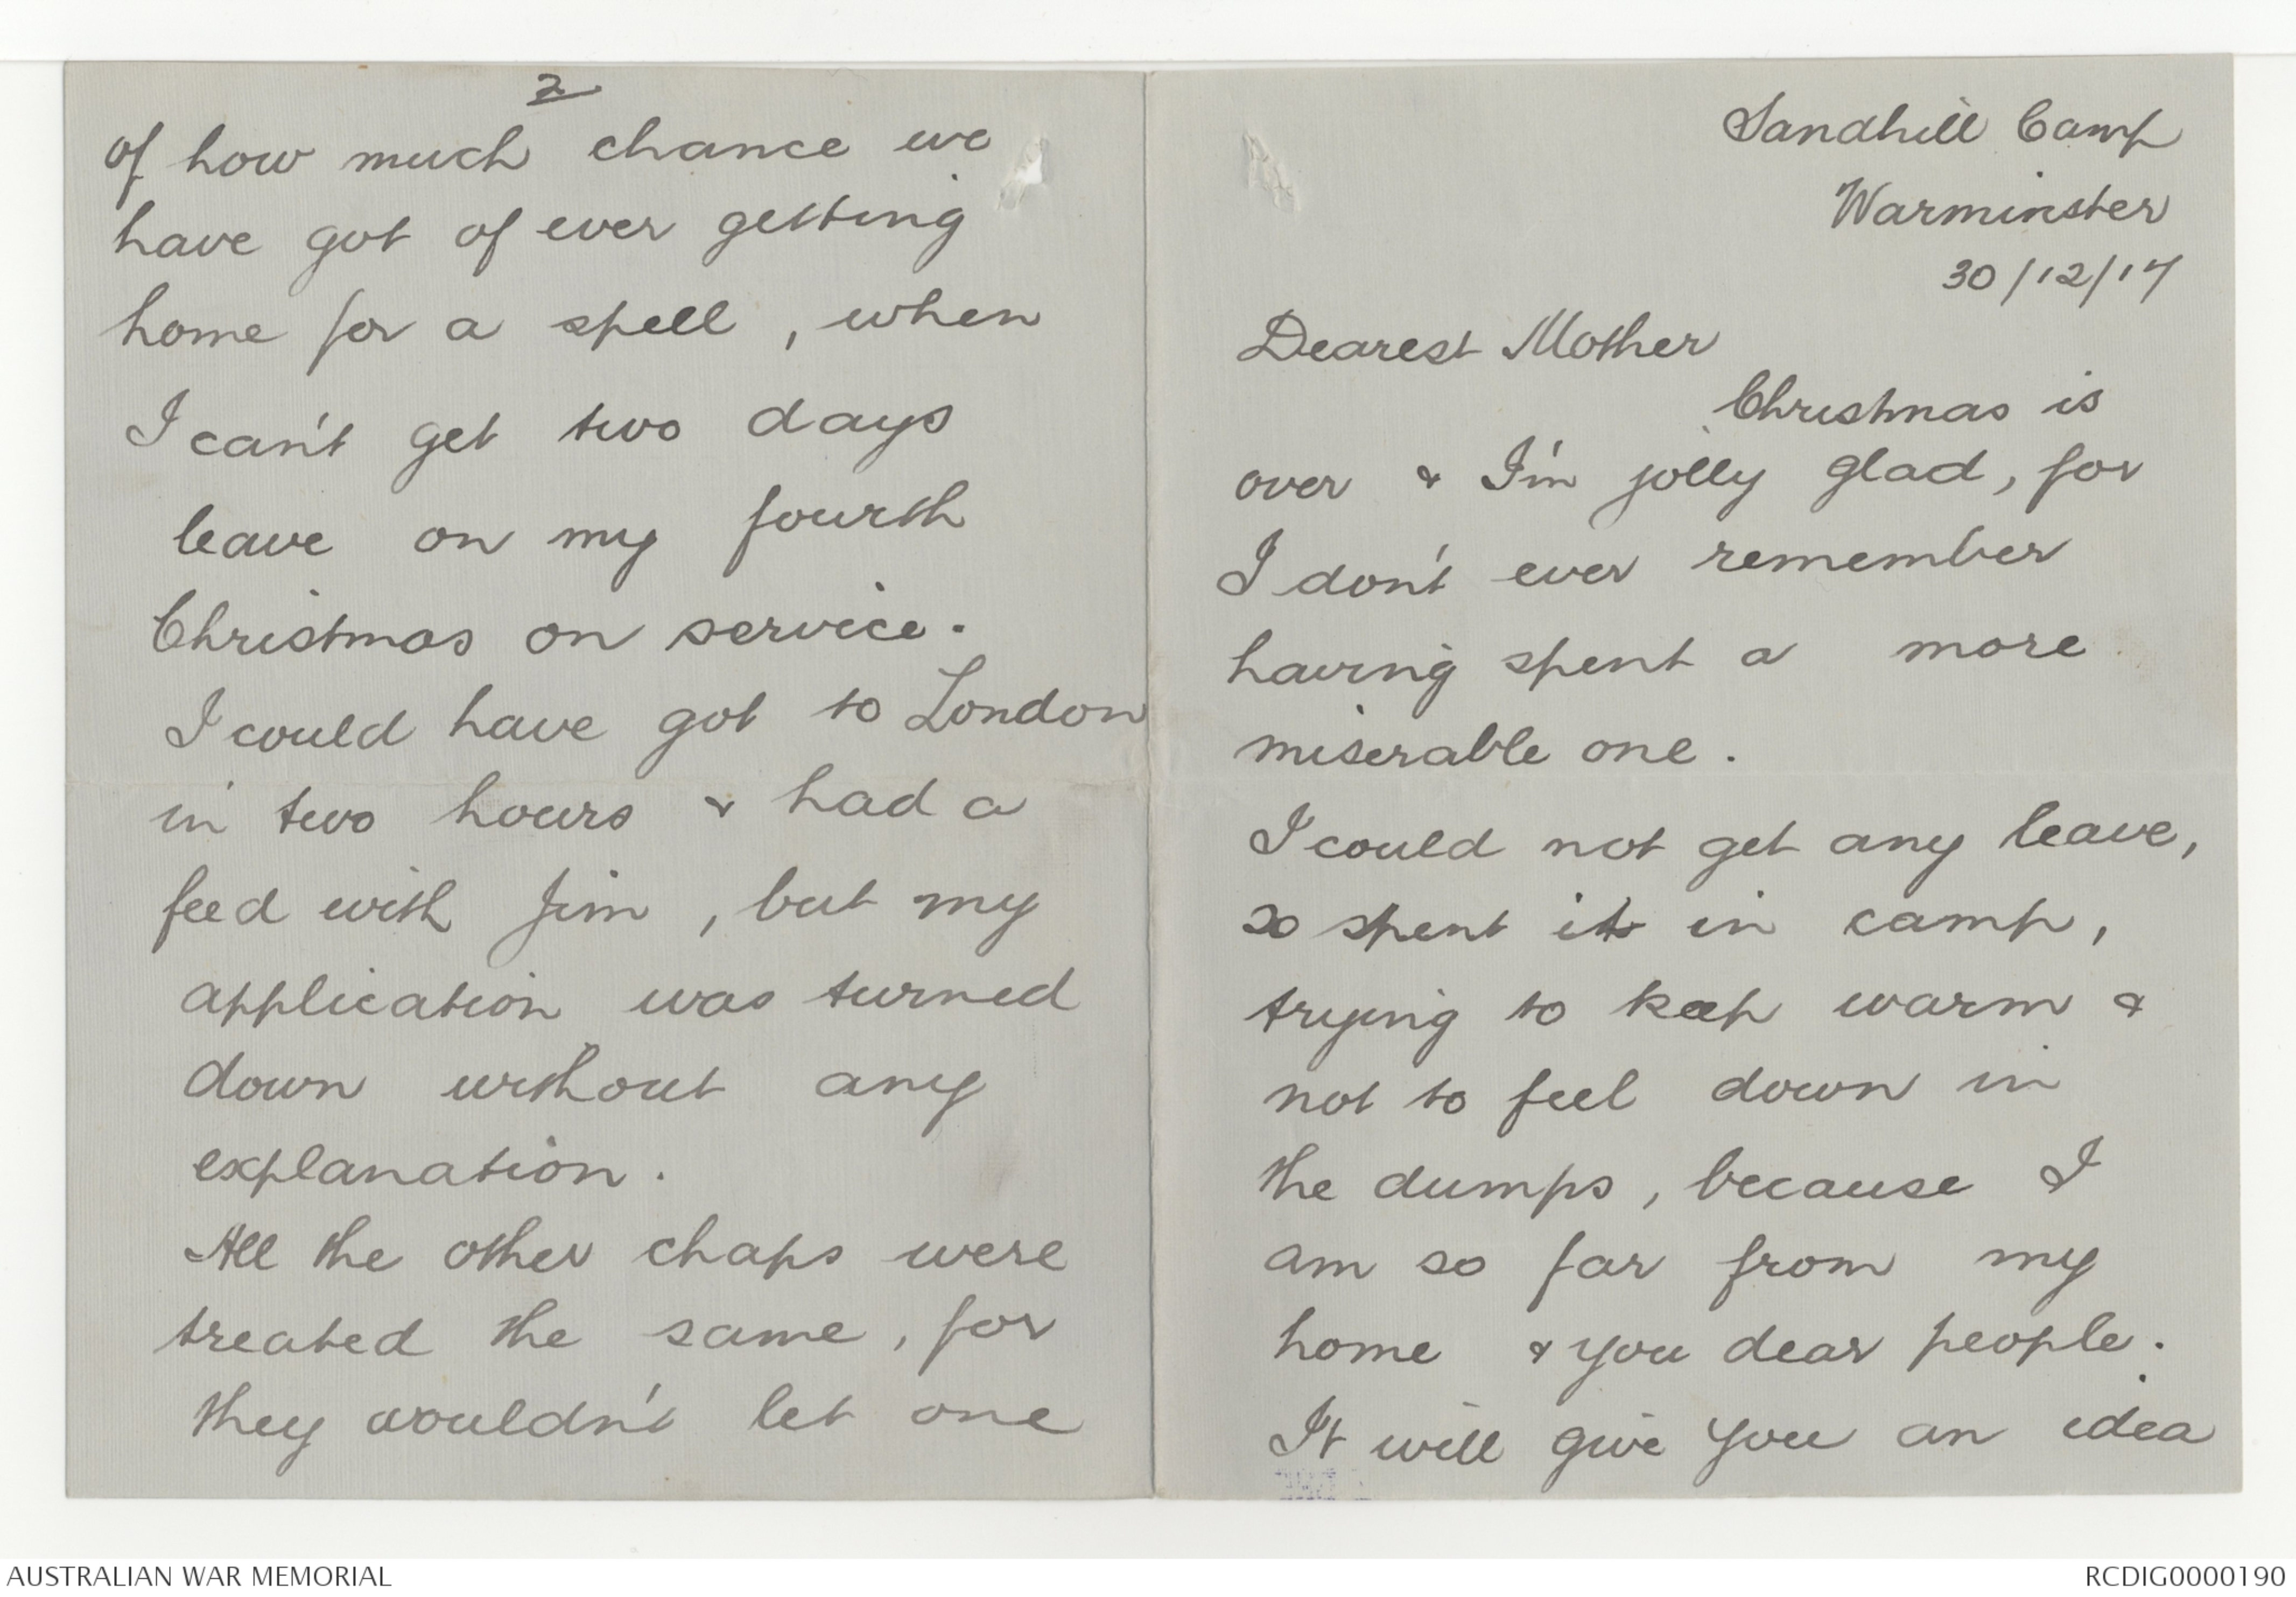 Sandhill Camp
Warminster
30/12/17
Dearest Mother
Christmas is
over & I'm jolly glad, for
I don't ever remember
having spent a more
miserable one.
I could not get any leave,
so spent it in camp,
trying to keep warm &
not to feel down in
the dumps, because I
am so far from my
home & you dear people.
It will give you an idea
2
of how much chance we
have got of ever getting
home for a spell, when
I can't get two days
leave on my fourth
Christmas on service.
I could have got to London
in two hours & had a
feed with Jim, but my
application was turned
down without any
explanation.
All the other chaps were
treated the same, for
they wouldn't let one
AUSTRALIAN WAR MEMORIAL
RCDIG0000190